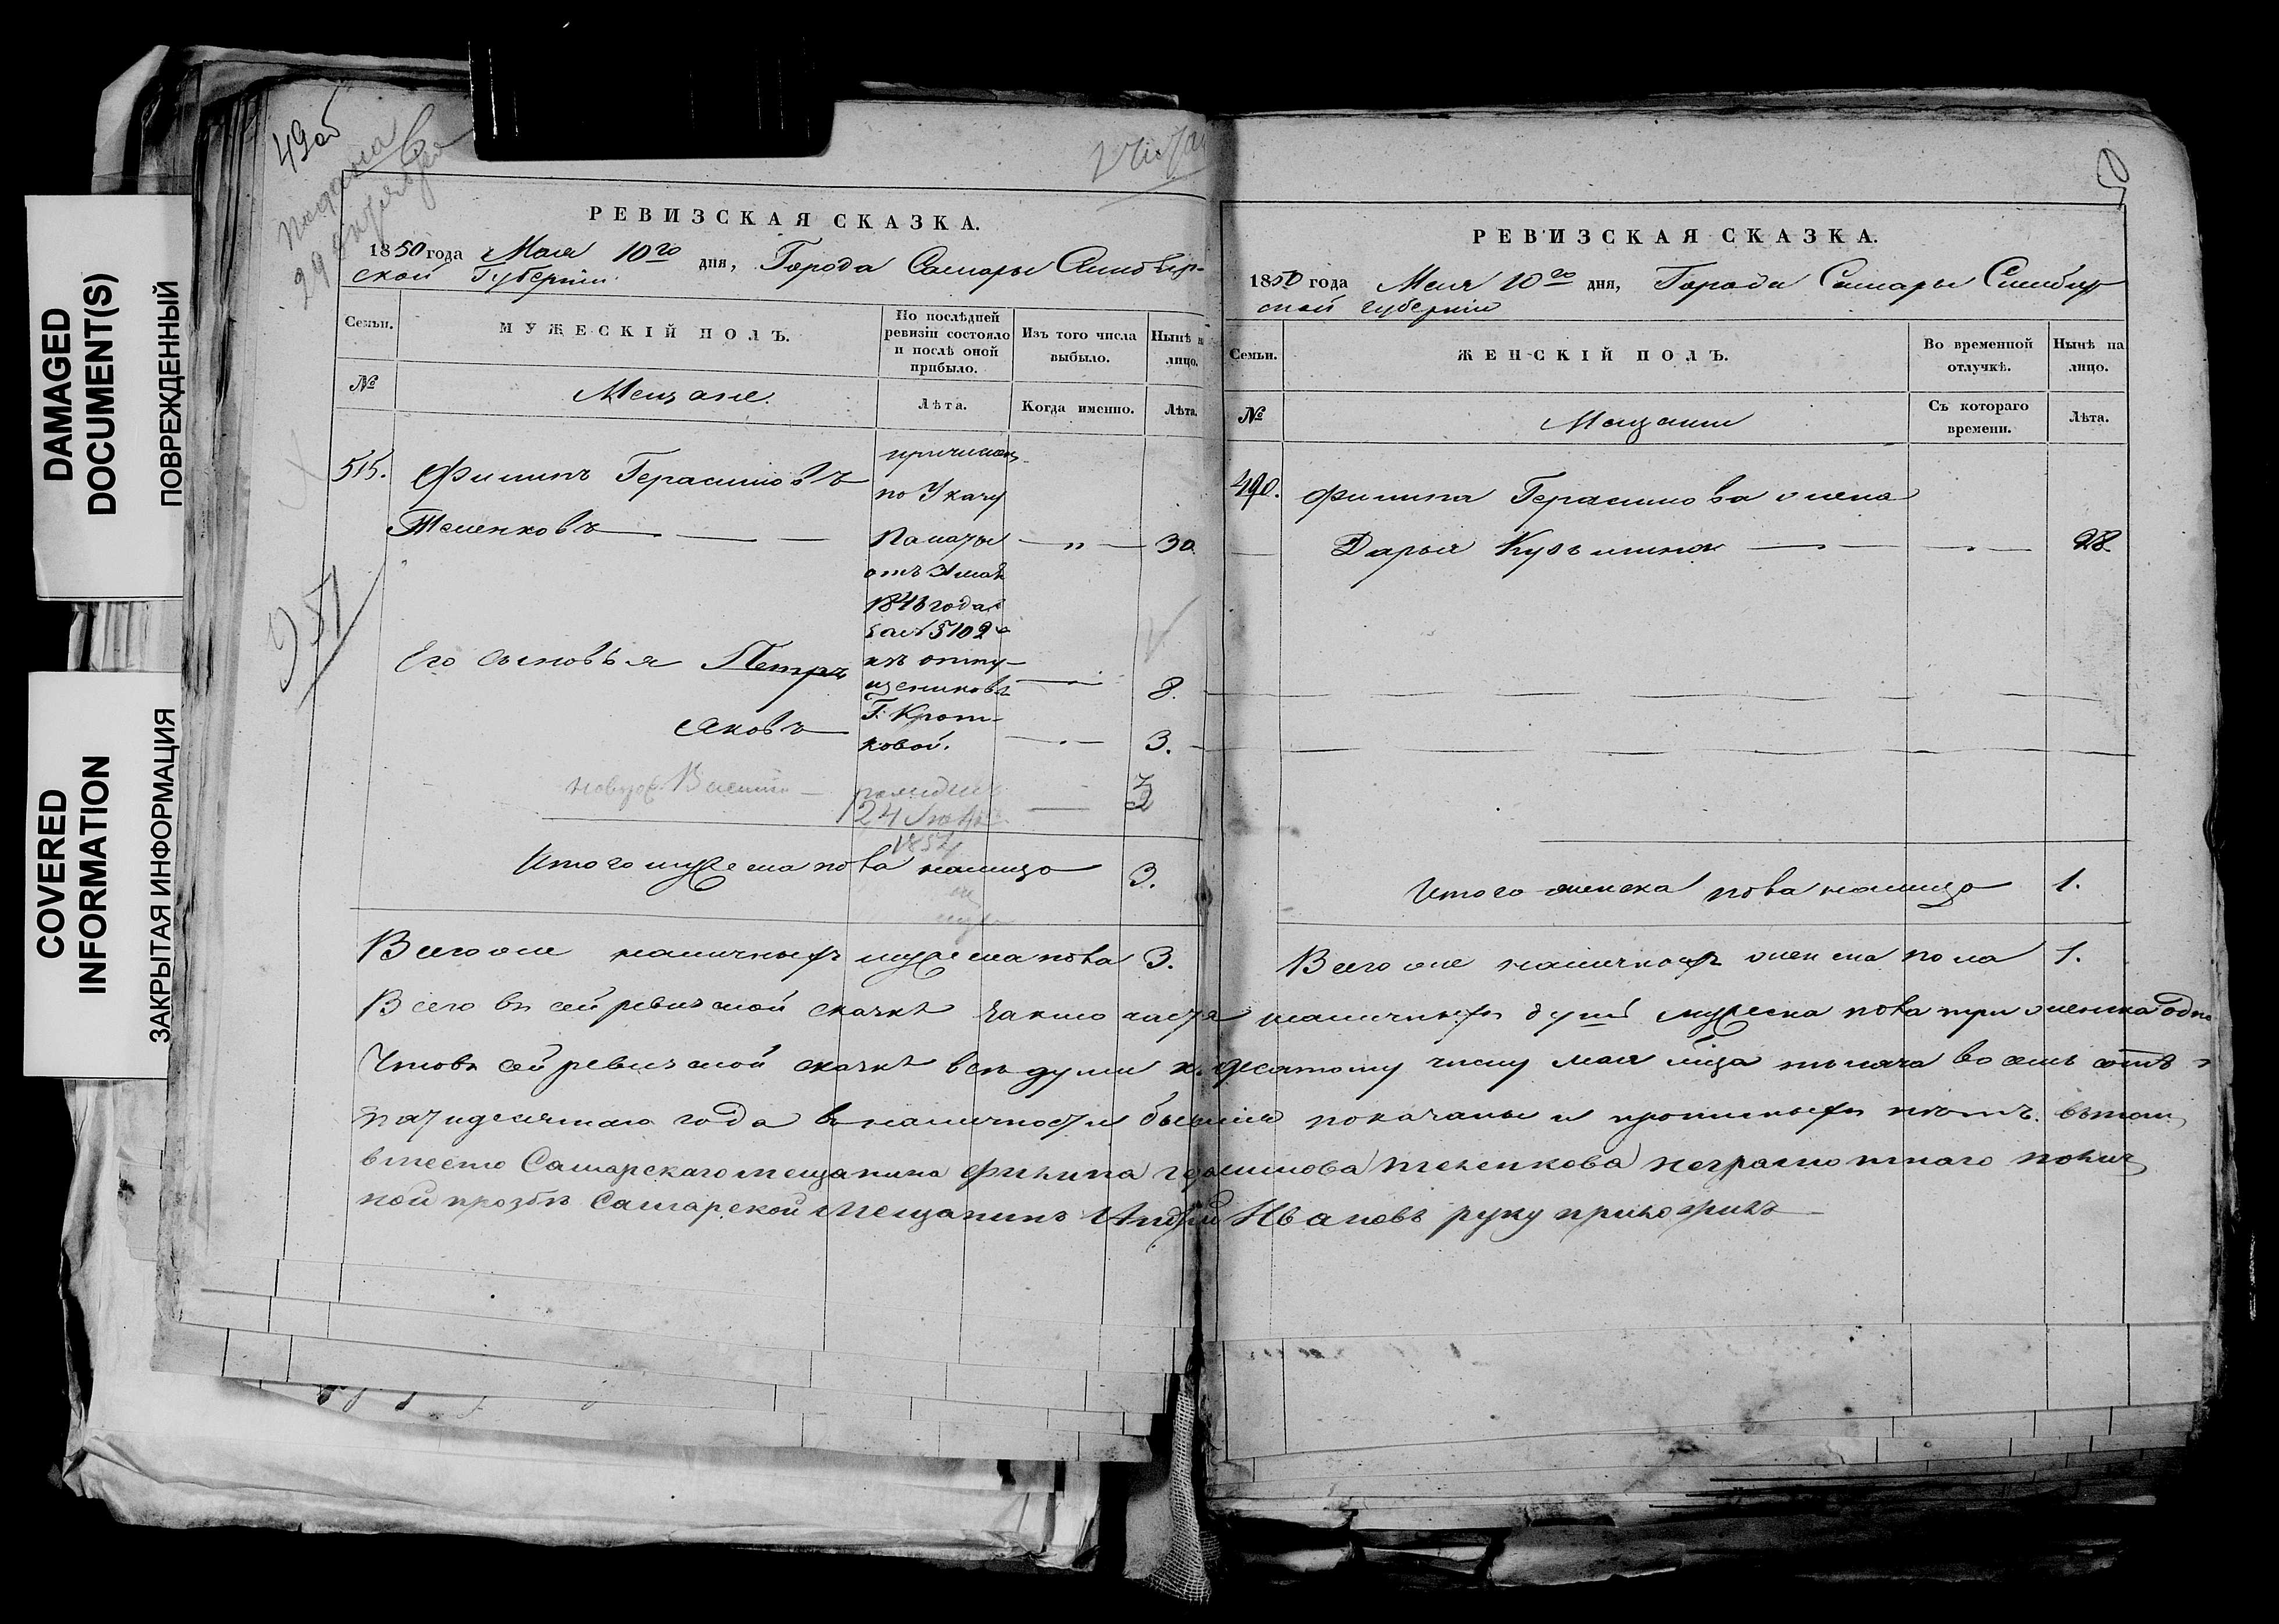 DAMAGED
DOCUMENT(S)
ПОВРЕЖДЕННЫЙ
COVERED
INFORMATION
ЗАКРЫТАЯ ИНФОРМАЦИЯ
49об
Подана
951
РЕВИЗСКАЯ СКАЗКА.
1850 года Мая 10го дня, Города Самары Симбир-
ской Губернии
Семьи.
МУЖЕСКІЙ ПОЛЪ.
По послѣдней
ревизіи состояло
и послѣ оной
прибыло.
Изъ того числа
выбыло.
Нынѣ н
лицо.
№
Мещане.
Лѣта.
Когда именно.
Лѣта.
515. Филипъ Герасимовъ
Теленковъ — — 30
причислен
по Указу
Палаты
отъ 31 мая
1843 года
за № 5102
изъ отпу-
щениковъ
Г. Крот-
ковой.
Его сыновья Петръ — 8.
Яковъ — 3.
новур. Василій —
24
1854
Итого мужеска пола налицо 3.
Всего же наличныхъ мужеска пола 3.
50
РЕВИЗСКАЯ СКАЗКА.
1850 года Мая 10го дня, Города Самары Симбир
ской губерніи
Семьи.
ЖЕНСКІЙ ПОЛЪ.
Во временной
отлучкѣ.
Нынѣ на
лицо.
№
Мещане
Съ котораго
времени.
Лѣта.
490. Филипа Герасимова жена
Дарья Кузьмина — — 28.
Итого женска пола налицо 1.
Всего же наличныхъ женска пола 1.
Всего въ сей ревизской сказкѣ заключается наличныхъ душъ мужеска пола три женска одна
Что въ сей ревизской сказкѣ все души къ десятому числу мая мца тысяча восемь сотъ
пятидесятаго года въ наличности бывшия показаны и прописныхъ нѣтъ. въ том
вместо Самарскаго мещанина Филипа герасимова теленкова неграмотнаго полич
ной прозбѣ Самарской Мещанинъ Андрей Ивановъ руку приложилъ